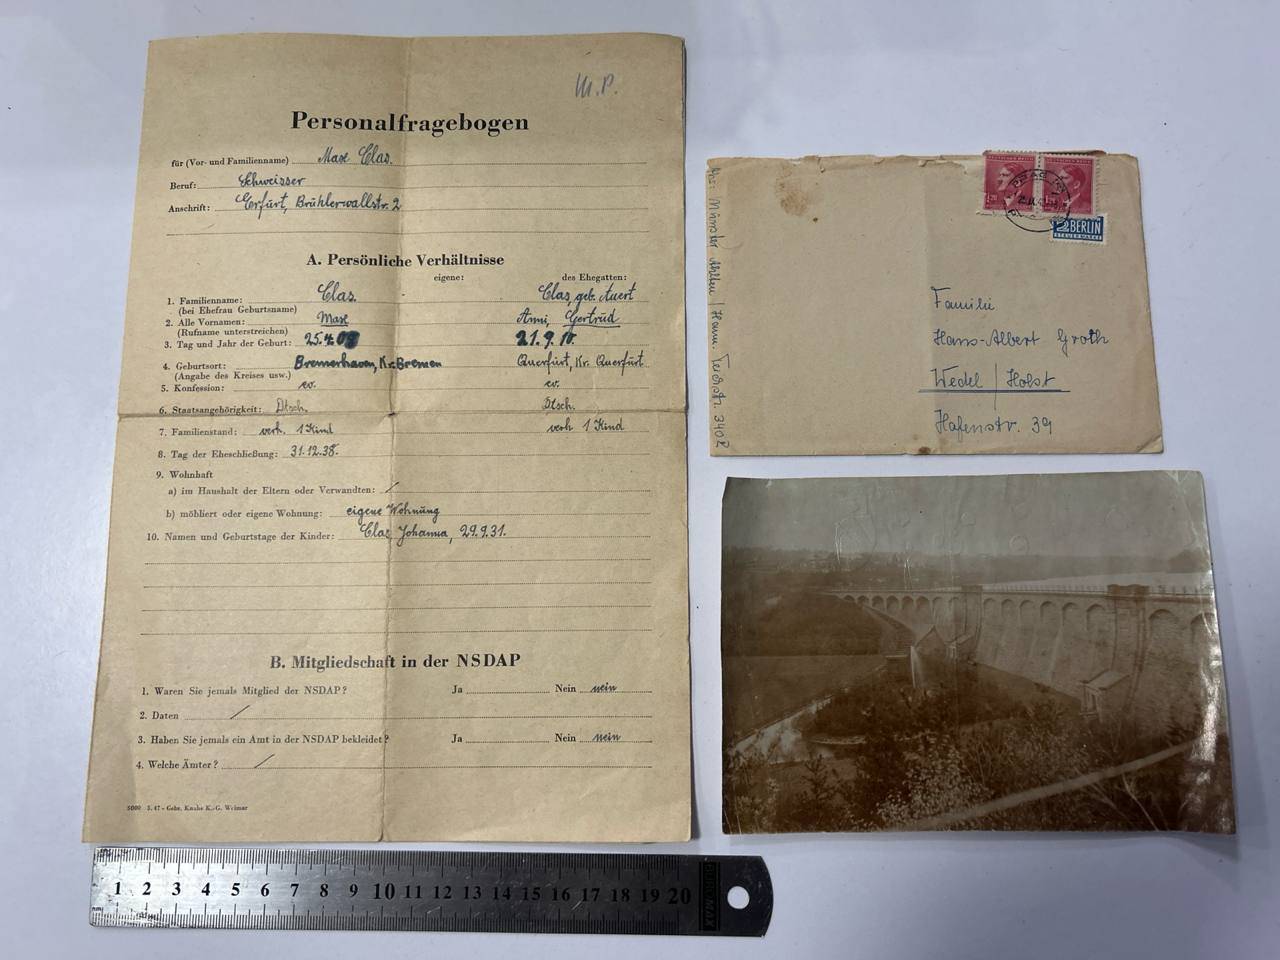 M.P.
Personalfragebogen
für (Vor- und Familienname) Max Clas.
Beruf: Schweisser
Anschrift: Erfurt, Brühlerwallstr. 2
A. Persönliche Verhältnisse
eigene: des Ehegatten:
1. Familienname: Clas. Clas, geb. Auert
(bei Ehefrau Geburtsname)
2. Alle Vornamen: Max Anni, Gertrud
(Rufname unterstreichen)
3. Tag und Jahr der Geburt: 25.4.08 21.9.10.
4. Geburtsort: Bremerhaven, Kr. Bremen Querfurt, Kr. Querfurt
(Angabe des Kreises usw.)
5. Konfession: ev. ev.
6. Staatsangehörigkeit: Dtsch. Dtsch.
7. Familienstand: verh. 1 Kind verh 1 Kind
8. Tag der Eheschließung: 31.12.38.
9. Wohnhaft
a) im Haushalt der Eltern oder Verwandten: /
b) möbliert oder eigene Wohnung: eigene Wohnung
10. Namen und Geburtstage der Kinder: Clas Johanna, 29.9.31.
B. Mitgliedschaft in der NSDAP
1. Waren Sie jemals Mitglied der NSDAP? Ja Nein nein
2. Daten /
3. Haben Sie jemals ein Amt in der NSDAP bekleidet? Ja Nein nein
4. Welche Ämter? /
5000 5. 47 - Gebr. Knabe K.-G. Weimar
DEUTSCHES REICH
PRAG
2 BERLIN
STEUERMARKE
Familie
Hans-Albert Groth
Wedel / Holst
Hafenstr. 39
Münster / Hann.
1 2 3 4 5 6 7 8 9 10 11 12 13 14 15 16 17 18 19 20